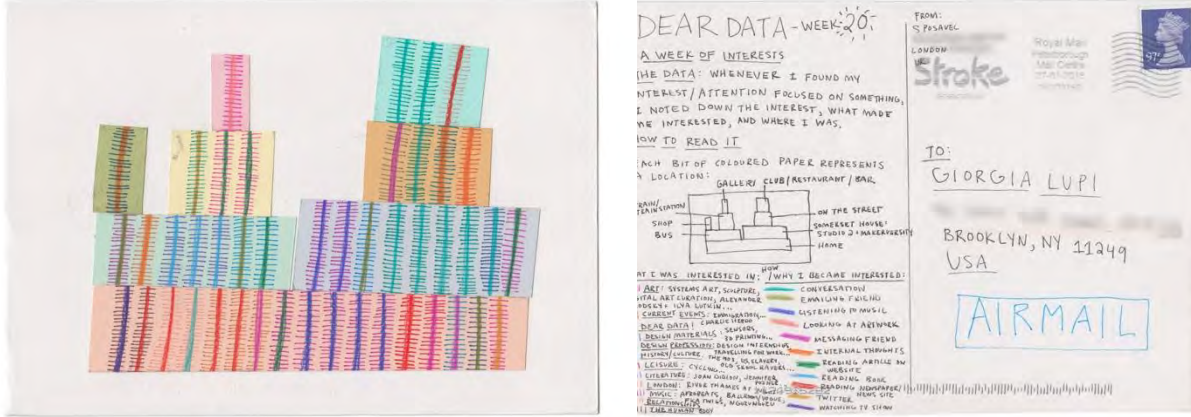 DEAR DATA - WEEK 20
A WEEK OF INTERESTS
THE DATA: WHENEVER I FOUND MY
INTEREST/ATTENTION FOCUSED ON SOMETHING,
I NOTED DOWN THE INTEREST, WHAT MADE
ME INTERESTED, AND WHERE I WAS.
HOW TO READ IT
EACH BIT OF COLOURED PAPER REPRESENTS
A LOCATION:
GALLERY CLUB/RESTAURANT/BAR
TRAIN/
TRAIN STATION
SHOP
BUS
ON THE STREET
SOMERSET HOUSE:
HOME
I WAS INTERESTED IN: HOW/WHY I BECAME INTERESTED:
ART: SYSTEMS ART, SCULPTURE,
DIGITAL ART CURATION, ALEXANDER
CURRENT EVENTS: IMMIGRATION,...
CHARLIE HEBDO
DEAR DATA: SENSORS,
DESIGN MATERIALS: 3D PRINTING...
DESIGN PROFESSION: DESIGN INTERNSHIPS
HISTORY/CULTURE: TRAVELLING FOR WORK...
LEISURE: CYCLING...
LITERATURE: JOAN DIDION, JENNIFER
LONDON: RIVER THAMES
MUSIC: AFROBEATS,
RELATIONSHIPS
THE HUMAN BODY
CONVERSATION
EMAILING FRIEND
LISTENING TO MUSIC
LOOKING AT ARTWORK
MESSAGING FRIEND
INTERNAL THOUGHTS
READING ARTICLE ON
WEBSITE
READING BOOK
READING NEWSPAPER/
NEWS SITE
TWITTER
WATCHING TV SHOW
FROM:
S POSAVEC
LONDON
UK
Stroke
Royal Mail
Mail Centre
TO:
GIORGIA LUPI
BROOKLYN, NY 11249
USA
AIRMAIL